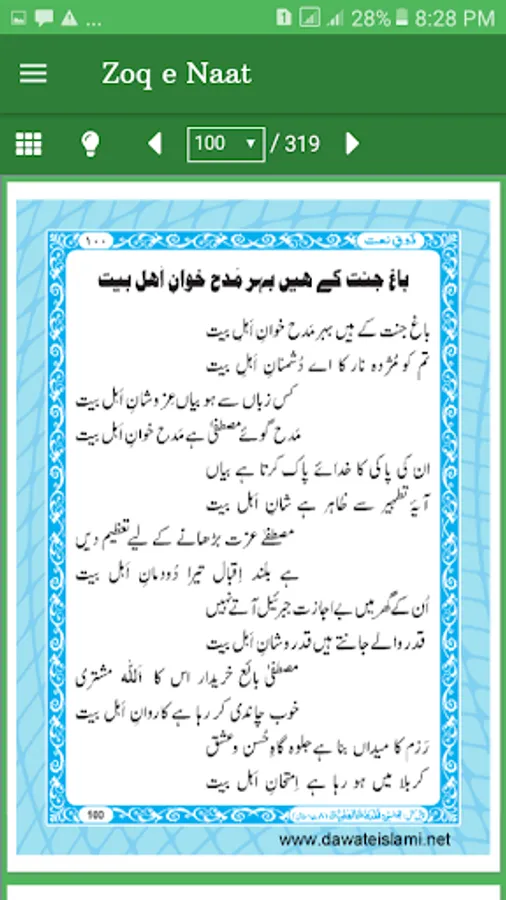 ... 28% 8:28 PM
Zoq e Naat
100 / 319
۱۰۰ ذوقِ نعت
باغِ جنت کے ھیں بہرِ مَدح خوانِ اَھلِ بیت
باغِ جنت کے ہیں بہرِ مَدح خوانِ اَہلِ بیت
تم کو مُژدہ نار کا اے دُشمنانِ اَہلِ بیت
کس زباں سے ہو بیاں عِز و شانِ اَہلِ بیت
مَدح گوئے مصطفےٰ ہے مَدح خوانِ اَہلِ بیت
ان کی پاکی کا خدائے پاک کرتا ہے بیاں
آیۂ تطہیر سے ظاہر ہے شانِ اَہلِ بیت
مصطفےٰ عزت بڑھانے کے لیے تعظیم دیں
ہے بلند اِقبال تیرا دُودمانِ اَہلِ بیت
اُن کے گھر میں بے اجازت جبرئیل آتے نہیں
قدر والے جانتے ہیں قدر و شانِ اَہلِ بیت
مصطفےٰ بائع خریدار اس کا اَللّٰہ مشتری
خوب چاندی کر رہا ہے کاروانِ اَہلِ بیت
رَزم کا میداں بنا ہے جلوہ گاہِ حُسن و عشق
کربلا میں ہو رہا ہے اِمتحانِ اَہلِ بیت
100
www.dawateislami.net